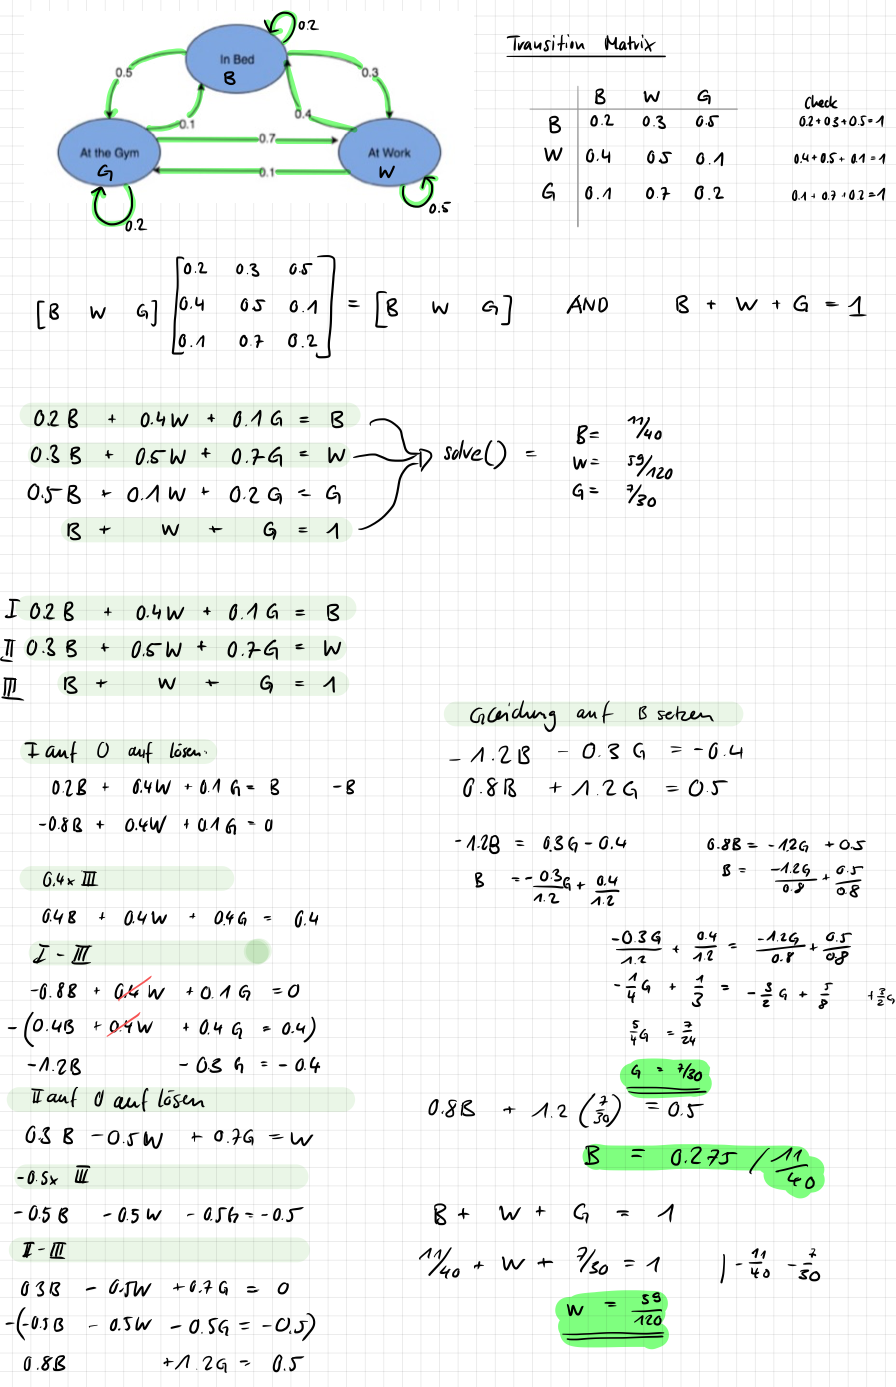 0.2
In Bed
B
0.5
0.3
0.1
0.4
At the Gym
G
0.7
0.1
At Work
W
0.2
0.5
Transition Matrix
B W G
Check
B 0.2 0.3 0.5 0.2+0.3+0.5=1
W 0.4 0.5 0.1 0.4+0.5+0.1=1
G 0.1 0.7 0.2 0.1+0.7+0.2=1
[B W G] [0.2 0.3 0.5
0.4 0.5 0.1
0.1 0.7 0.2] = [B W G] AND B + W + G = 1
0.2B + 0.4W + 0.1G = B
0.3B + 0.5W + 0.7G = W
0.5B + 0.1W + 0.2G = G
B + W + G = 1
solve() =
B= 11/40
W= 59/120
G= 7/30
I 0.2B + 0.4W + 0.1G = B
II 0.3B + 0.5W + 0.7G = W
III B + W + G = 1
I auf 0 auf lösen.
0.2B + 0.4W + 0.1G = B -B
-0.8B + 0.4W + 0.1G = 0
0.4x III
0.4B + 0.4W + 0.4G = 0.4
I - III
-0.8B + 0.4W + 0.1G = 0
-(0.4B + 0.4W + 0.4G = 0.4)
-1.2B - 0.3G = -0.4
II auf 0 auf lösen
0.3B - 0.5W + 0.7G = W
-0.5x III
-0.5B - 0.5W - 0.5G = -0.5
II - III
0.3B - 0.5W + 0.7G = 0
-(-0.5B - 0.5W - 0.5G = -0.5)
0.8B + 1.2G = 0.5
Gleichung auf B setzen
-1.2B - 0.3G = -0.4
0.8B + 1.2G = 0.5
-1.2B = 0.3G - 0.4 0.8B = -1.2G + 0.5
B = -0.3G/1.2 + 0.4/1.2 B = -1.2G/0.8 + 0.5/0.8
-0.3G/1.2 + 0.4/1.2 = -1.2G/0.8 + 0.5/0.8
-1/4G + 1/3 = -3/2G + 5/8 +3/2G
5/4G = 7/24
G = 7/30
0.8B + 1.2(7/30) = 0.5
B = 0.275 / 11/40
B + W + G = 1
11/40 + W + 7/30 = 1 | -11/40 -7/30
W = 59/120